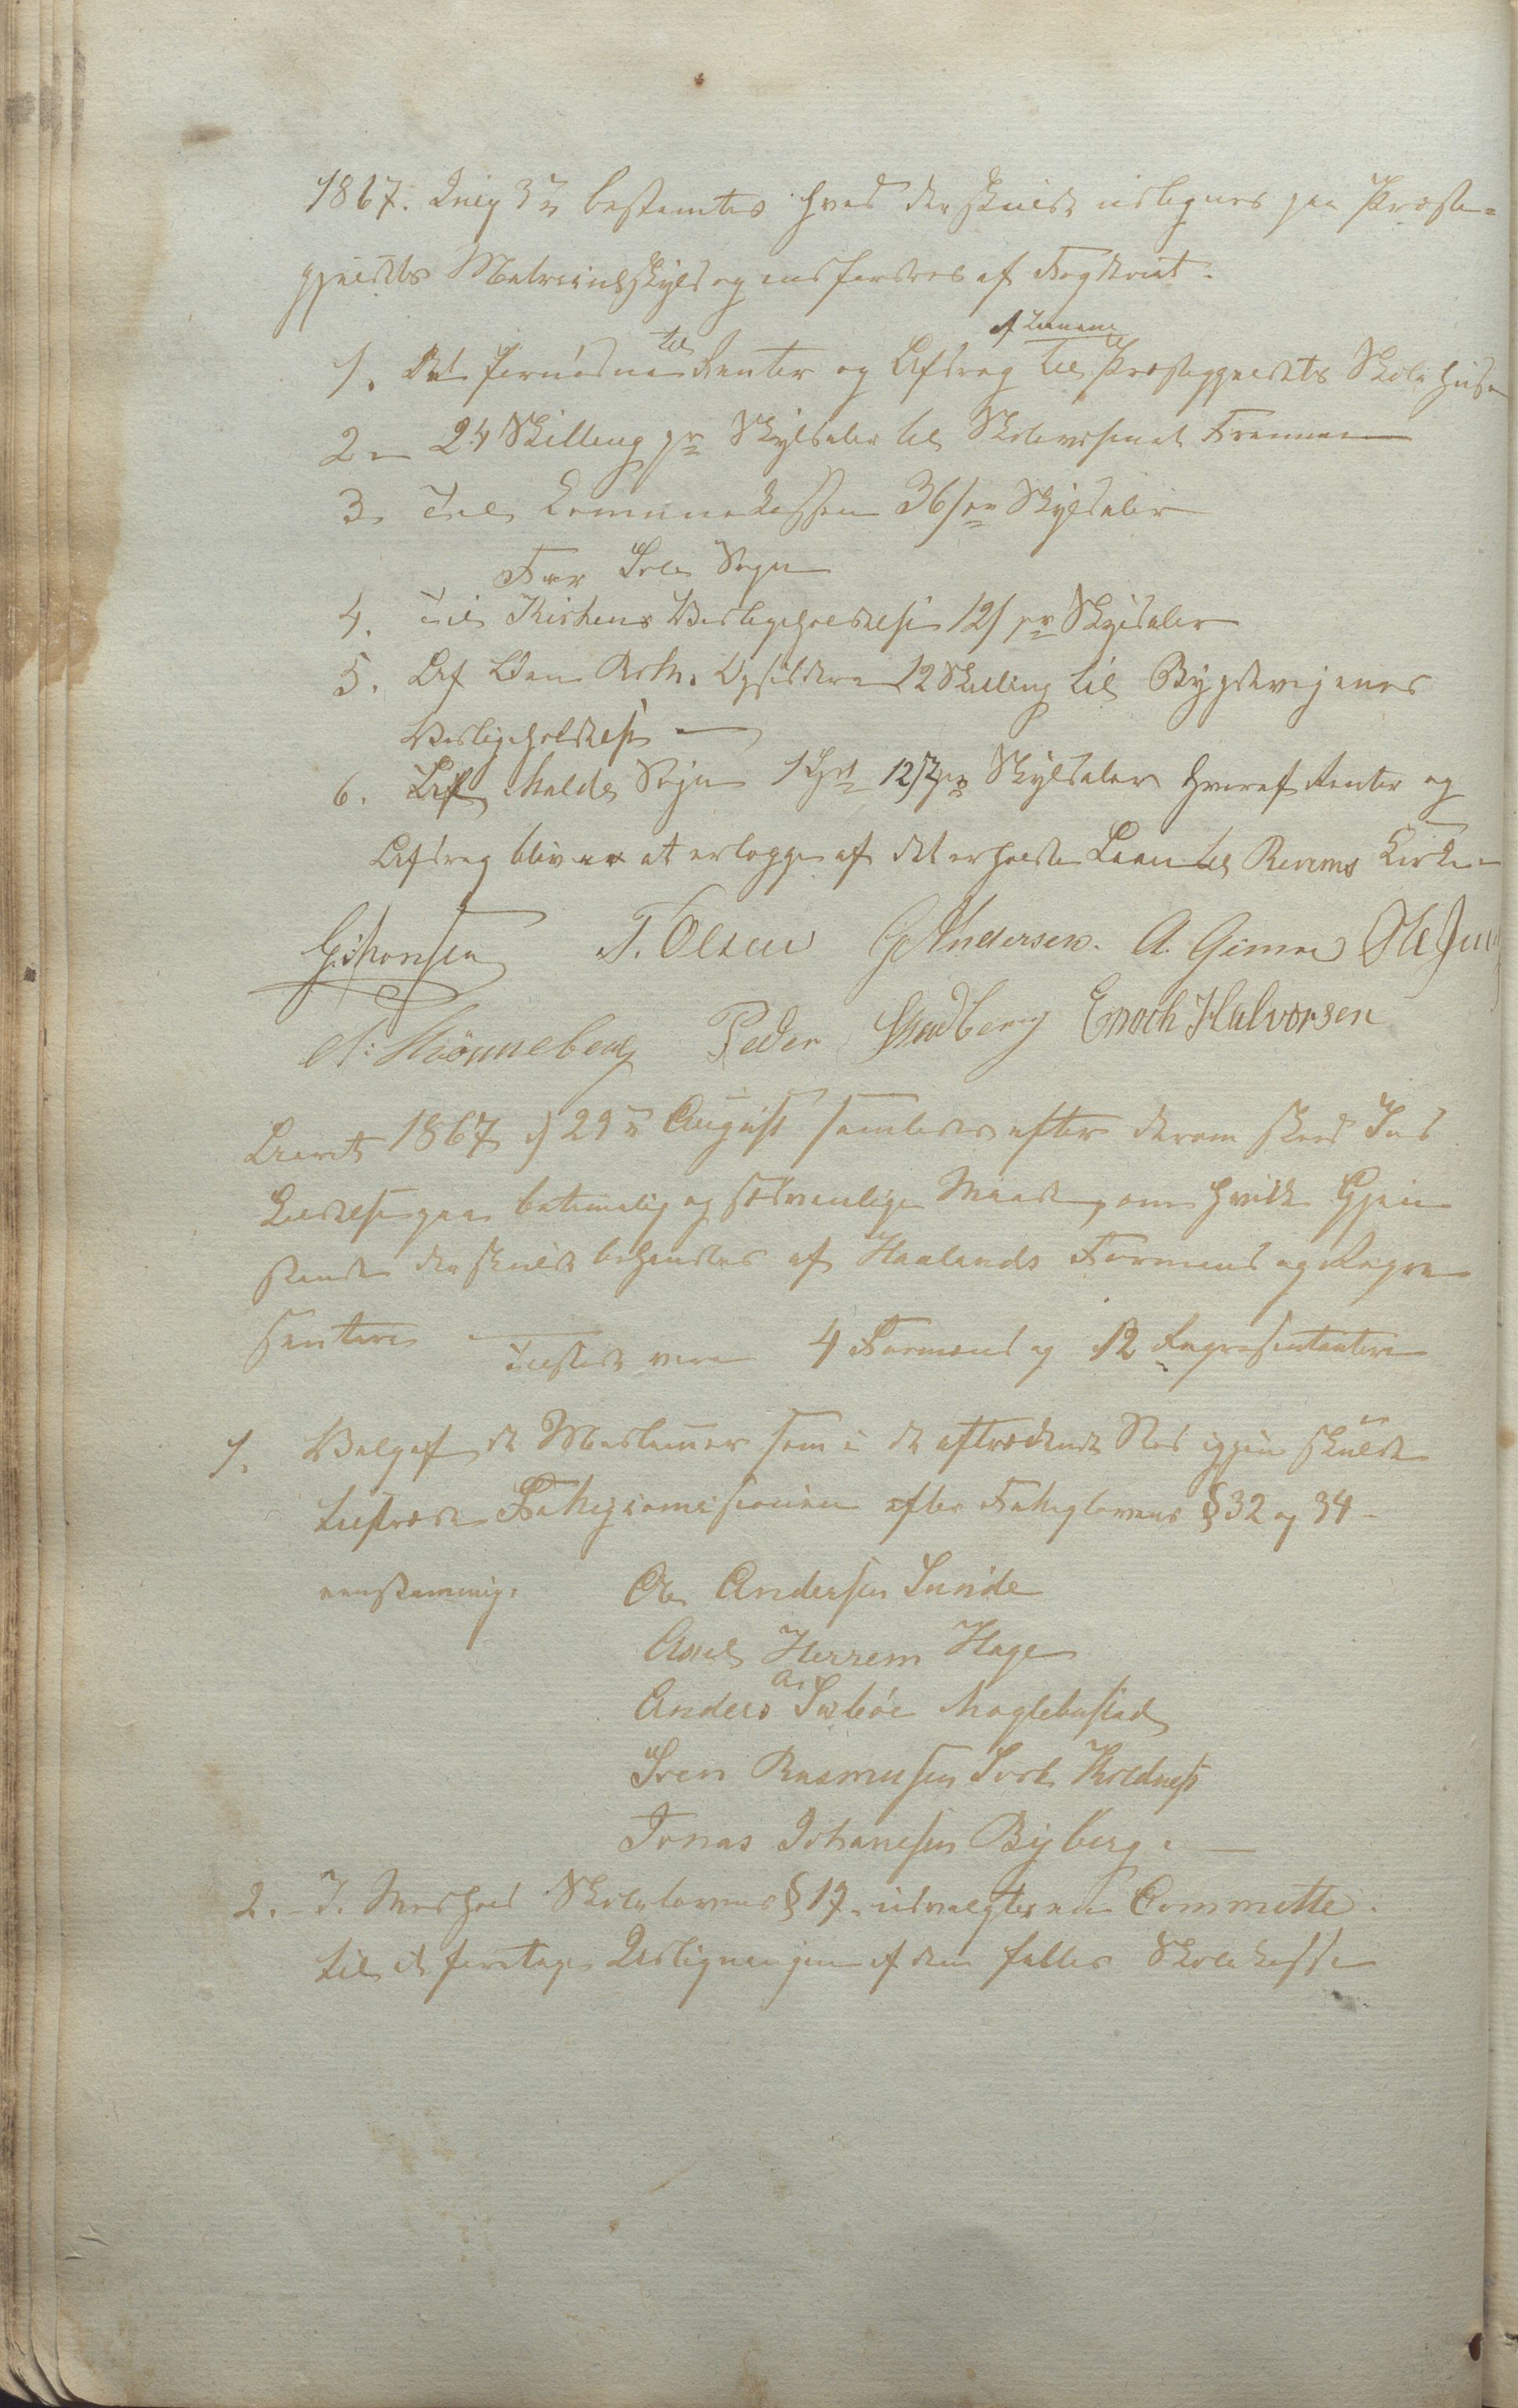 1867. Juny 3de bestemtes hvad der skulde udlignes paa Præste-
gjeldets Matriculskyld og indfordres af Fogderiet.
1. Det fornødne til Renter og Afdrag af Laanene til Præstegjeldets Skolehuse
2 24 Skilling pr Skyldaler til Skolevesenets Fremme
3 Til Communekassen 36 s pr Skyldaler
For Sole Sogn
4. Til Kirkens Vedligeholdelse 12 s pr Skyldaler
5. Af Opsiddere 12 Skilling til Bygdeveienes
Vedligeholdelse
6. Af Malde Sogn 1 Ort 12 s pr Skyldaler hvoraf Renter og
Afdrag bliver at erlegge af det erholdte Laan til Revems Kirke
G. Monsen T. Olsen G Andersen. A. Gimre Ole
N: Strønneberg Peder Sandberg Enoch Halvorsen
Aaret 1867 d 29de August samledes efter derom skeed Ind
kaldelse paa betimelig og sædvanlige Maade, om hvilke Gjen
stande der skulde behandles af Haalands Formænd og Repræ
sentere
Tilstede vare 4 Formænd og 12 Repræsentantere
1. Valg af de Medlemmer som i de aftrædende Sted igjen skulde
tiltræde Fattigcomisionen efter Fattiglovens § 32 og 34
eenstemmig. Ole Andersen Sunde
Axel Herrem Hage
Anders A. Sæbøe Meglebustad
Sven Rasmusen Sørb Koldnes
Jonas Johanesen Byberg.
2. I Medhold Skolelovens § 17 udvalgtes en Committe
til at foretage Udligningen af den falles Skolekasse